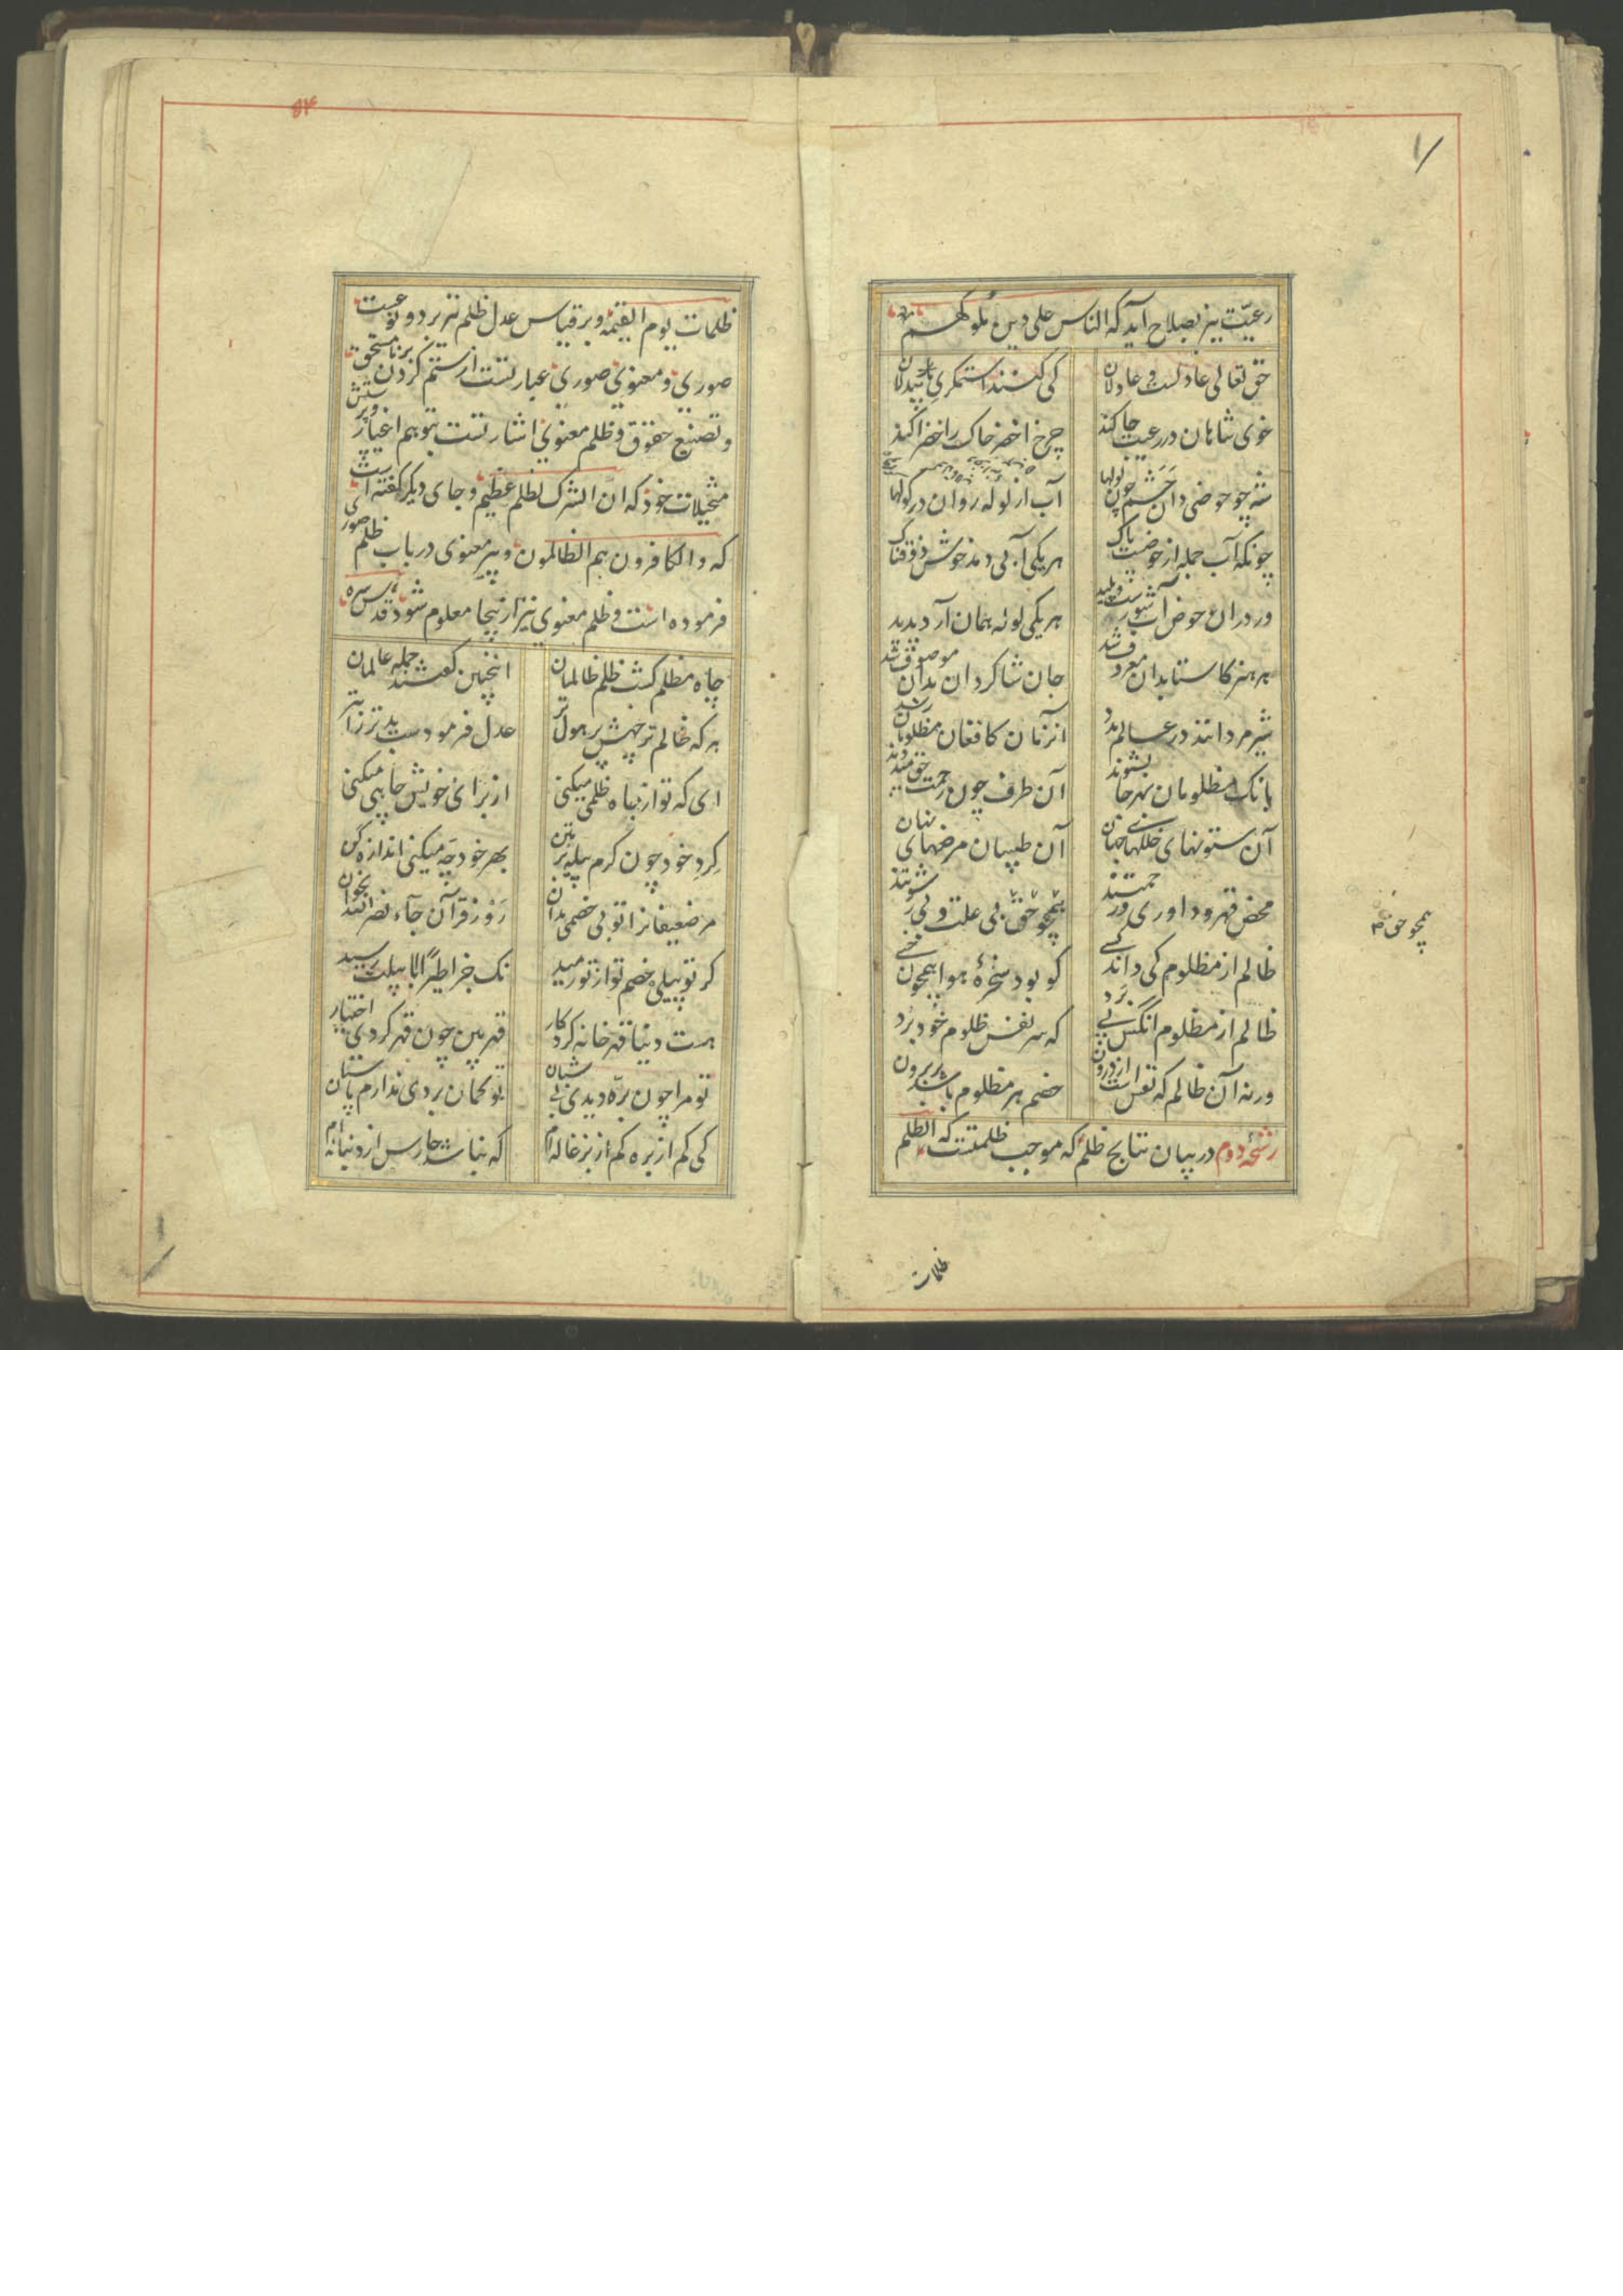 رعیّت نیز بصلاح آید که الناس علی دین ملوکهم
حق تعالی عادلست و عادلان
کی کنند استمکری بر بیدلان
خوی شاهان در رعیت جا کند
چرخ اخضر خاک را خضرا کند
شه چو حوضی دان حشم چون لولها
آب از لوله روان در کولها
چونکه آب جمله از حوضیست پاک
هر یکی آبی دهد خوش ذوقناک
ور در آن حوض آب شورست و پلید
هر یکی لوله همان آرد پدید
هر هنر کاستا بدان معروف شد
جان شاکردان بدان موصوف شد
شیر مردانند در عالم مدد
آنزمان کافغان مظلومان رسد
بانک مظلومان ز هر جا بشنوند
آن طرف چون رحمت حق میدوند
آن ستونهای خللهای جهان
آن طبیبان مرضهای نهان
محض قهر و داوری و رحمتند
همچو حق بی علت و بی رشوتند
همچو حق
ظالم از مظلوم کی داند کسی
کو بود سخرهٔ هوا همچون خسی
ظالم از مظلوم آنکس پی برد
که سر نفس ظلوم خود برد
ورنه آن ظالم که نفس است از درون
خصم هر مظلوم باشد بر برون
رشحهٔ دوم در بیان نتایج ظلم که موجب ظلمتست که الظلم
ظلمات
ظلمات یوم القیمه و بر قیاس عدل ظلم نیز بر دو نوعست
صوری و معنوی صوری عبارتست از ستم کردن بر نامستحق
و تضییع حقوق و ظلم معنوی اشارتست بتوهم اغیار و پرستش
متخیلات خود که انّ الشرک لظلم عظیم و جای دیگر گفته است
که و الکافرون هم الظالمون و پیر معنوی در باب ظلم صوری
فرموده است و ظلم معنوی نیز از ینجا معلوم شود قدس سره
چاه مظلم کشت ظلم ظالمان
اینچنین کفتند جمله عالمان
هر که ظالم تر چهش پر هول تر
عدل فرمودست بدتر را بتر
ای که تو از جاه ظلمی میکنی
از برای خویش چاهی میکنی
کرد خود چون کرم پیله بر متن
بهر خود چه میکنی اندازه کن
مر ضعیفانرا تو بی خصمی مدان
رو ز قرآن جاء نصر الله بخوان
کر تو پیلی خصم تو از تو رمید
نک جزا طیرًا ابابیلت رسید
هست دنیا قهر خانه کردکار
قهر بین چون قهر کردی اختیار
تو مرا چون بره دیدی بی شبان
تو کمان بردی ندارم پاسبان
کی کم از بره کم از بزغاله‌ام
که نباشد حارس از دنباله‌ام